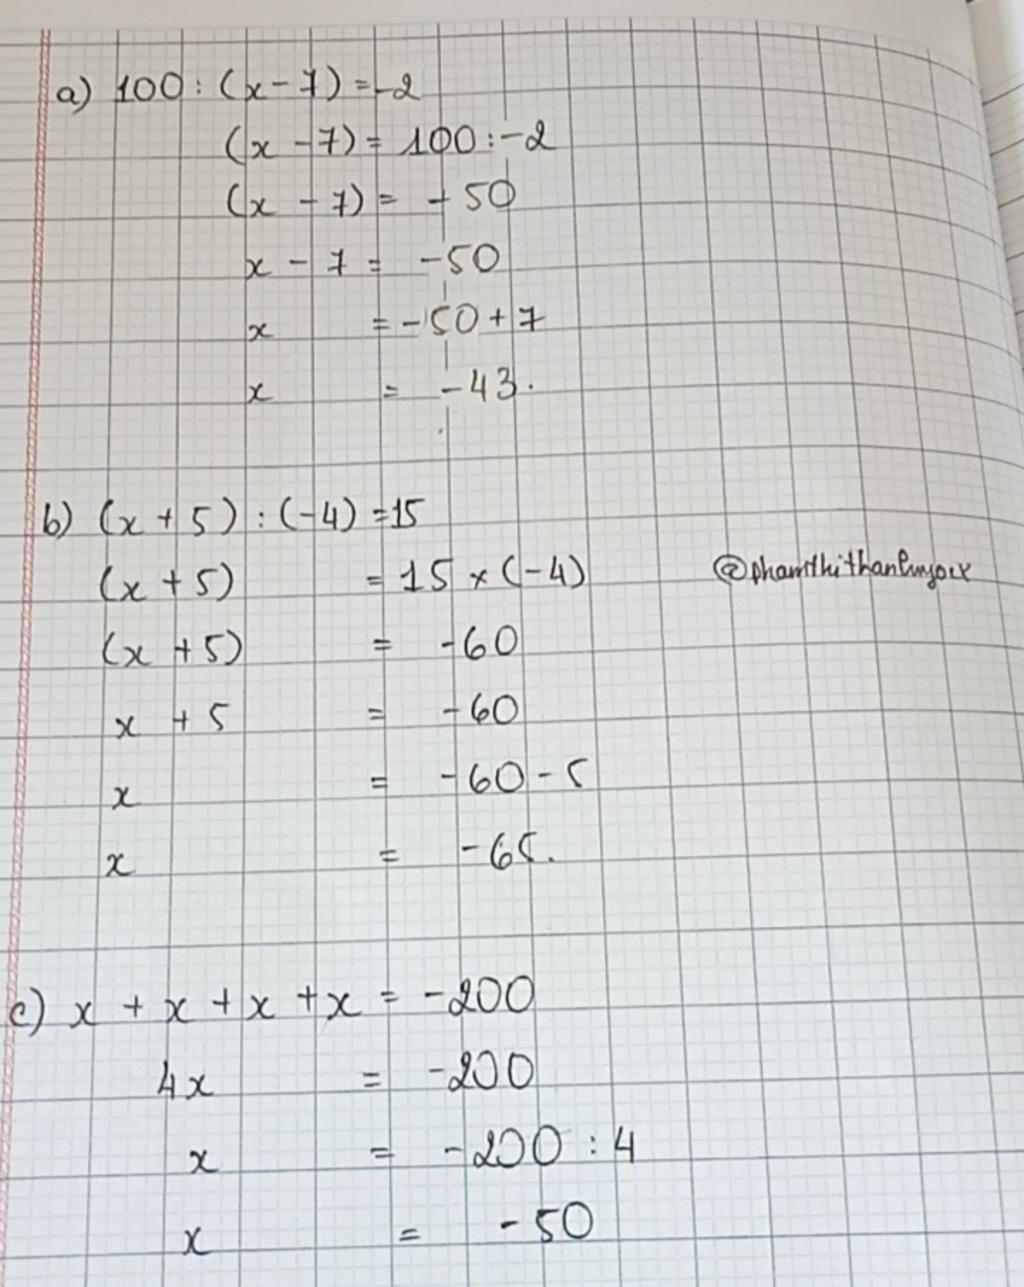 a) 100 : (x - 7) = -2
(x - 7) = 100 : -2
(x - 7) = - 50
x - 7 = -50
x = -50 + 7
x = -43.
b) (x + 5) : (-4) = 15
(x + 5) = 15 × (-4)
(x + 5) = -60
x + 5 = -60
x = -60 - 5
x = -65.
c) x + x + x + x = -200
4x = -200
x = -200 : 4
x = -50